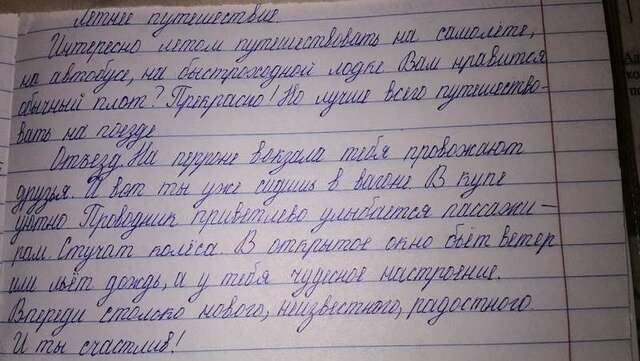 Летнее путешествие.
Интересно летом путешествовать на самолёте,
на автобусе, на быстроходной лодке Вам нравится
обычный плот? Прекрасно! Но лучше всего путешество-
вать на поезде
Отъезд. На перроне вокзала тебя провожают
друзья. И вот ты уже сидишь в вагоне. В купе
уютно Проводник приветлево улыбается пассажи-
рам. Стучат колёса. В открытое окно бьёт ветер
или льёт дождь, а у тебя чудесное настроение.
Впереди столько нового, неизвестного, радостного.
И ты счастлив!